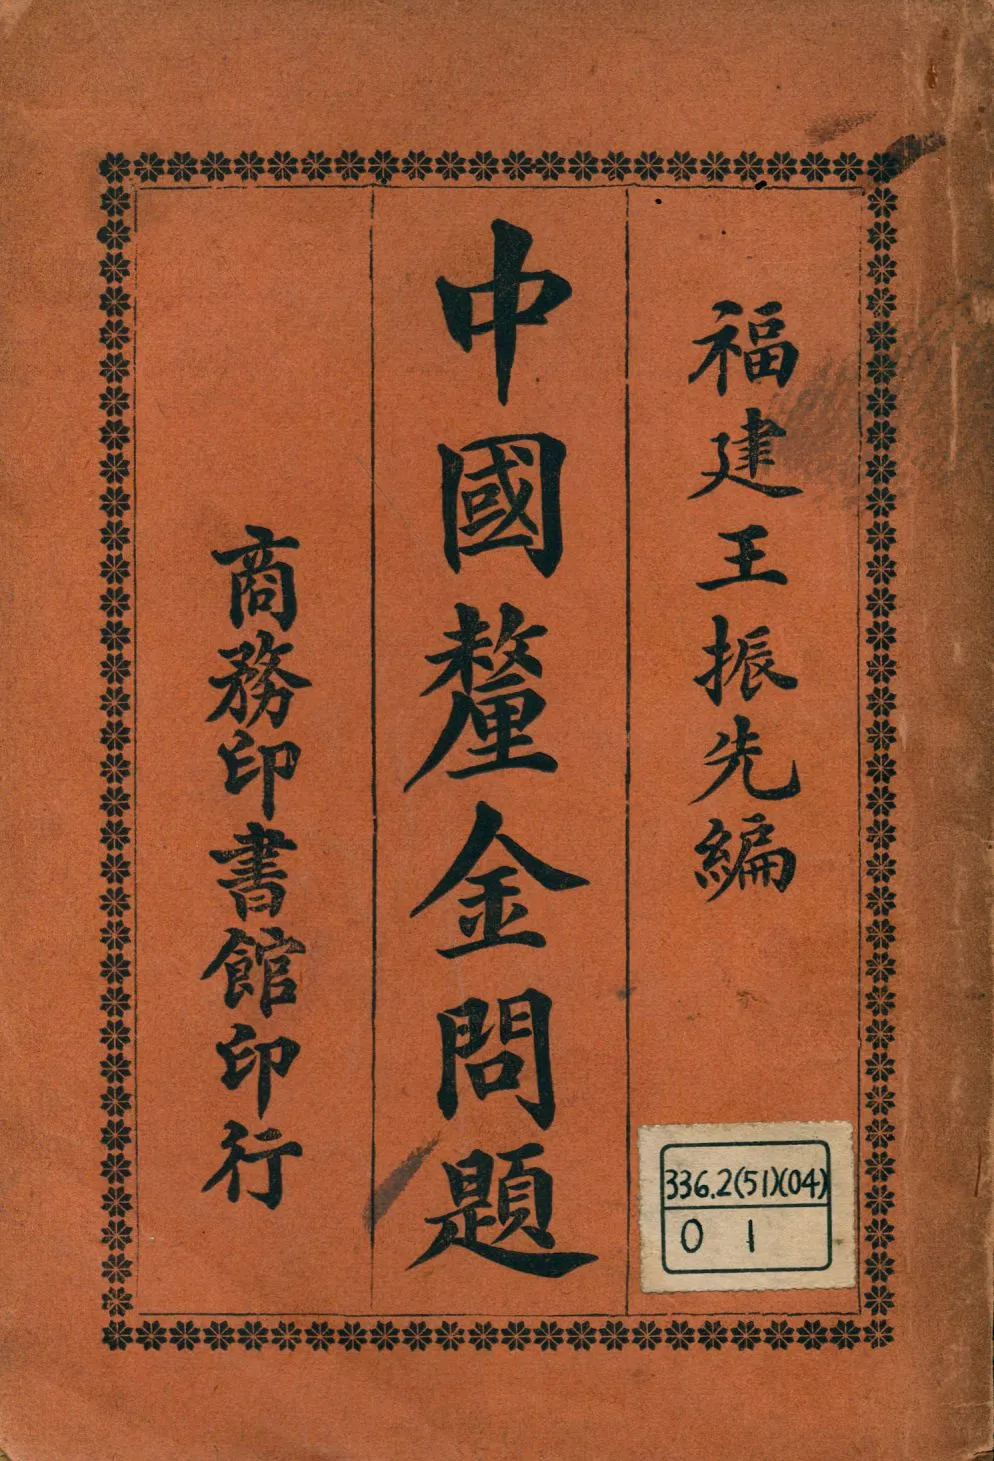 福建王振先編
中國釐金問題
商務印書館印行
336.2(51)(04)
0 1